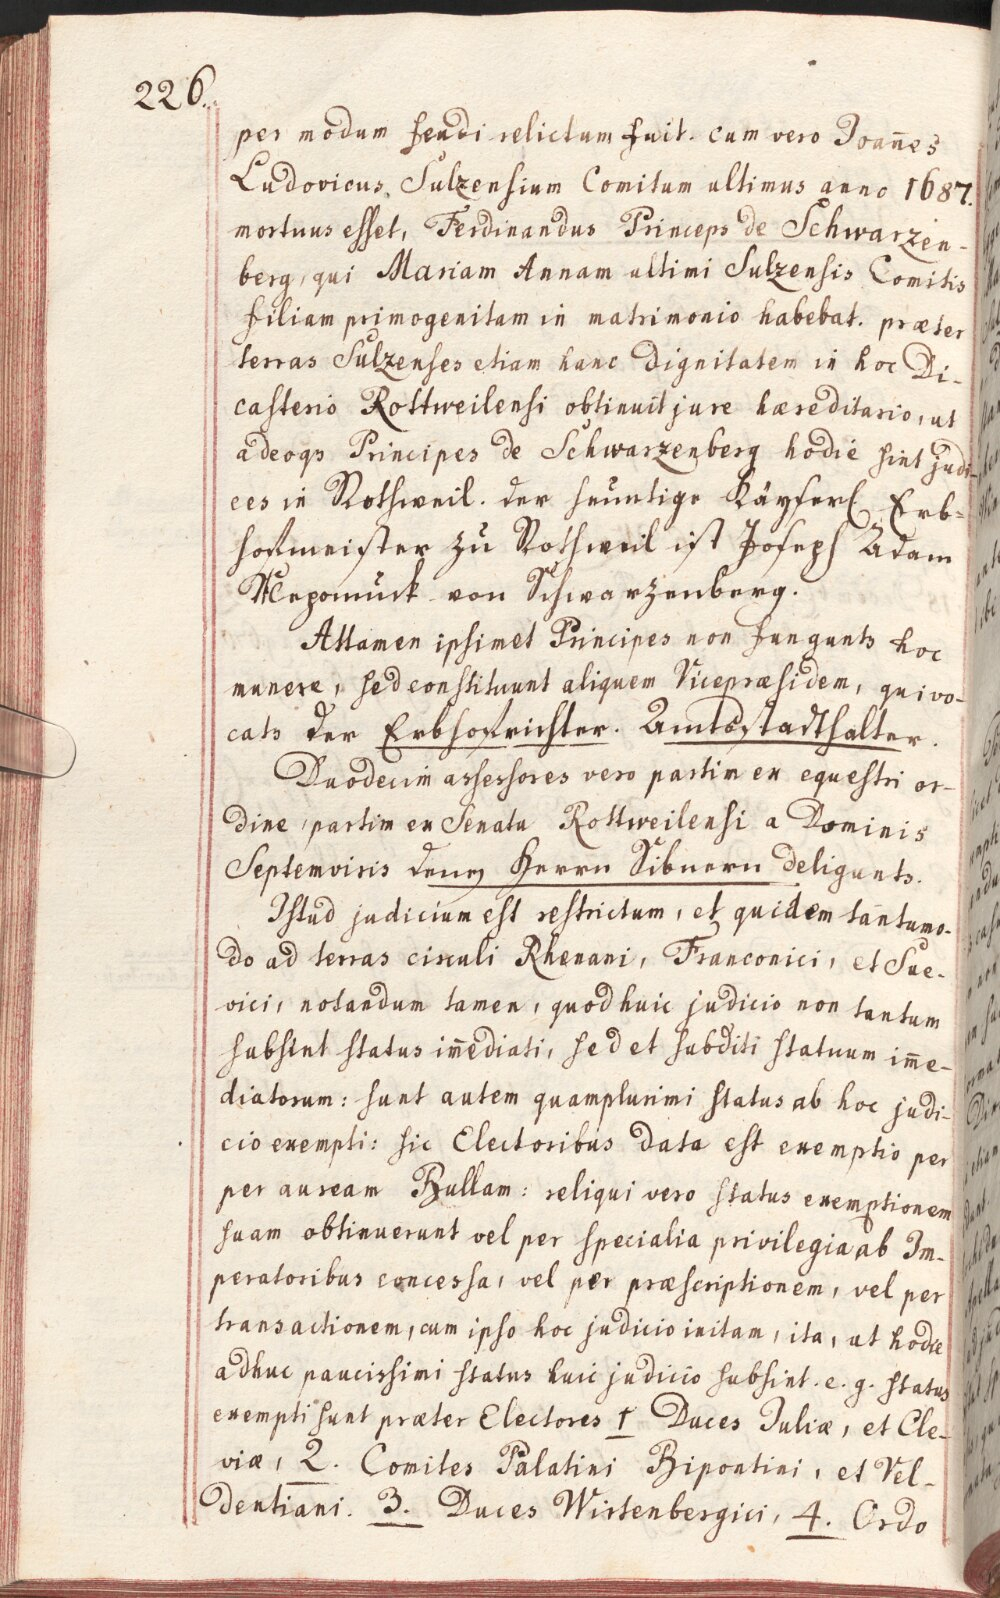 226.
per modum feudi relictum fuit. cum vero Joan̄es
Ludovicus Sulzensium Comitum ultimus anno 1687.
mortuus esset, Ferdinandus Princeps de Schwarzen-
berg, qui Mariam Annam ultimi Sulzensis Comitis
filiam primogenitam in matrimonio habebat. præter
terras Sulzenses etiam hanc dignitatem in hoc Di-
casterio Rottweilensi obtinuit jure hæreditario, ut
adeoqs Principes de Schwarzenberg hodie sint judi-
ces in Rothweil. der heüntige Käyserl. Erb-
hoffmeister zu Rothweil ist Joseph Adam
Nepomück von Schwarzenberg.
Attamen ipsimet Principes non fungunts hoc
munere, sed constituunt aliquem Vicepræsidem, qui vo-
cats der Erbhoffrichter. Ambtsstadthalter.
Duodecim assessores vero partim ex equestri or-
dine, partim ex Senatu Rottweilensi a Dominis
Septemviris denen Herrn Sibnern deligunts.
Istud judicium est restrictum, et quidem tantumo-
do ad terras circuli Rhenani, Franconici, et Sue-
vici, notandum tamen, quod huic judicio non tantum
subsint status im̄ediati, sed et subditi statuum im̄e-
diatorum: sunt autem quamplurimi status ab hoc judi-
cio exempti: sic Electoribus data est exemptio per
per auream Bullam: reliqui vero status exemptionem
suam obtinuerunt vel per specialia privilegia ab Im-
peratoribus concessa, vel per præscriptionem, vel per
transactionem, cum ipso hoc judicio initam, ita, ut hodie
adhuc paucissimi status huic judicio subsint. e. g. status
exempti sunt præter Electores 1 Duces Juliæ, et Cle-
viæ, 2. Comites Palatini Bipontini, et Vel-
dentiani. 3. Duces Wirtenbergici, 4. Ordo